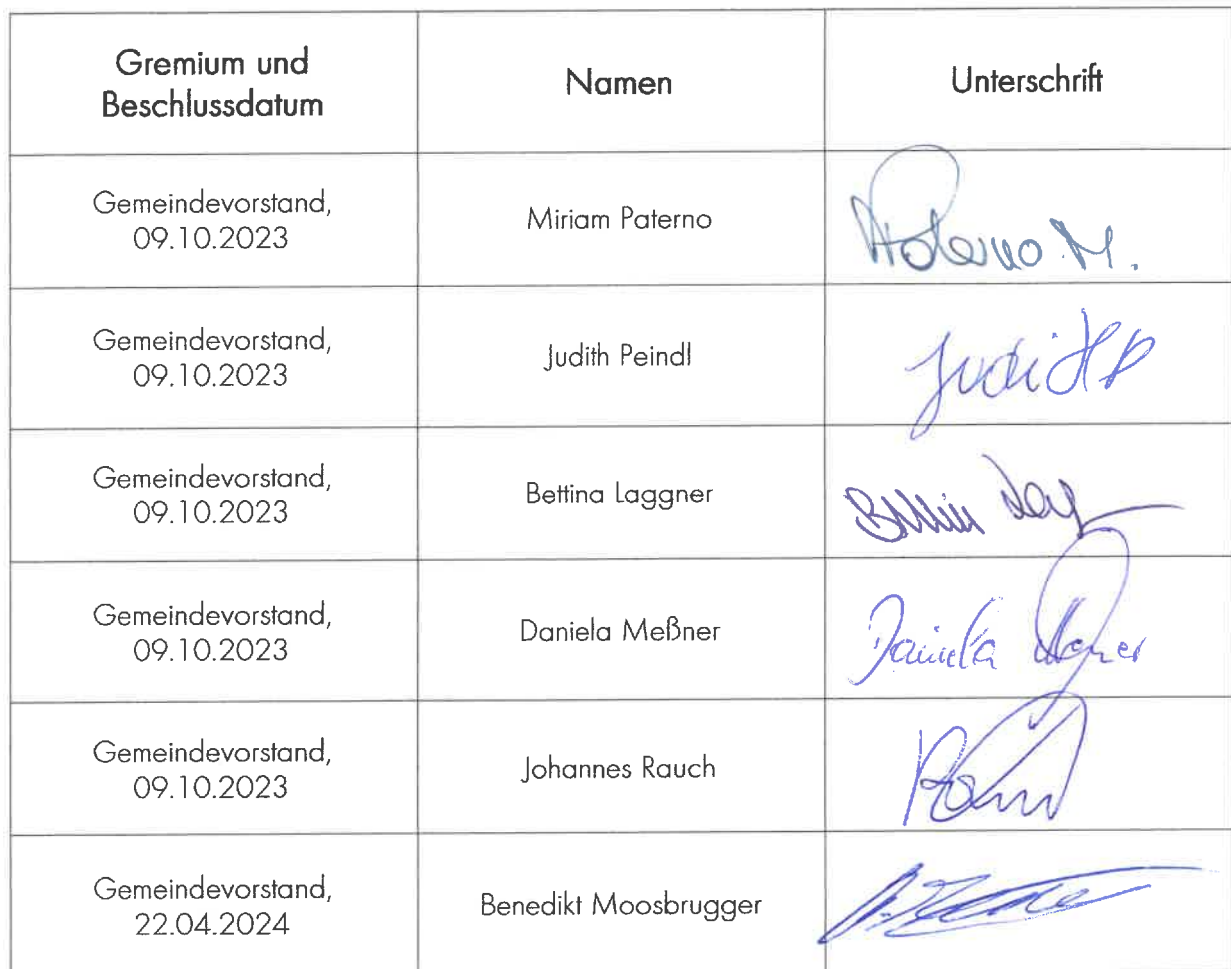 Gremium und
Beschlussdatum
Namen
Unterschrift
Gemeindevorstand,
09.10.2023
Miriam Paterno
Paterno M.
Gemeindevorstand,
09.10.2023
Judith Peindl
Judith P
Gemeindevorstand,
09.10.2023
Bettina Laggner
Gemeindevorstand,
09.10.2023
Daniela Meßner
Daniela
Gemeindevorstand,
09.10.2023
Johannes Rauch
Gemeindevorstand,
22.04.2024
Benedikt Moosbrugger